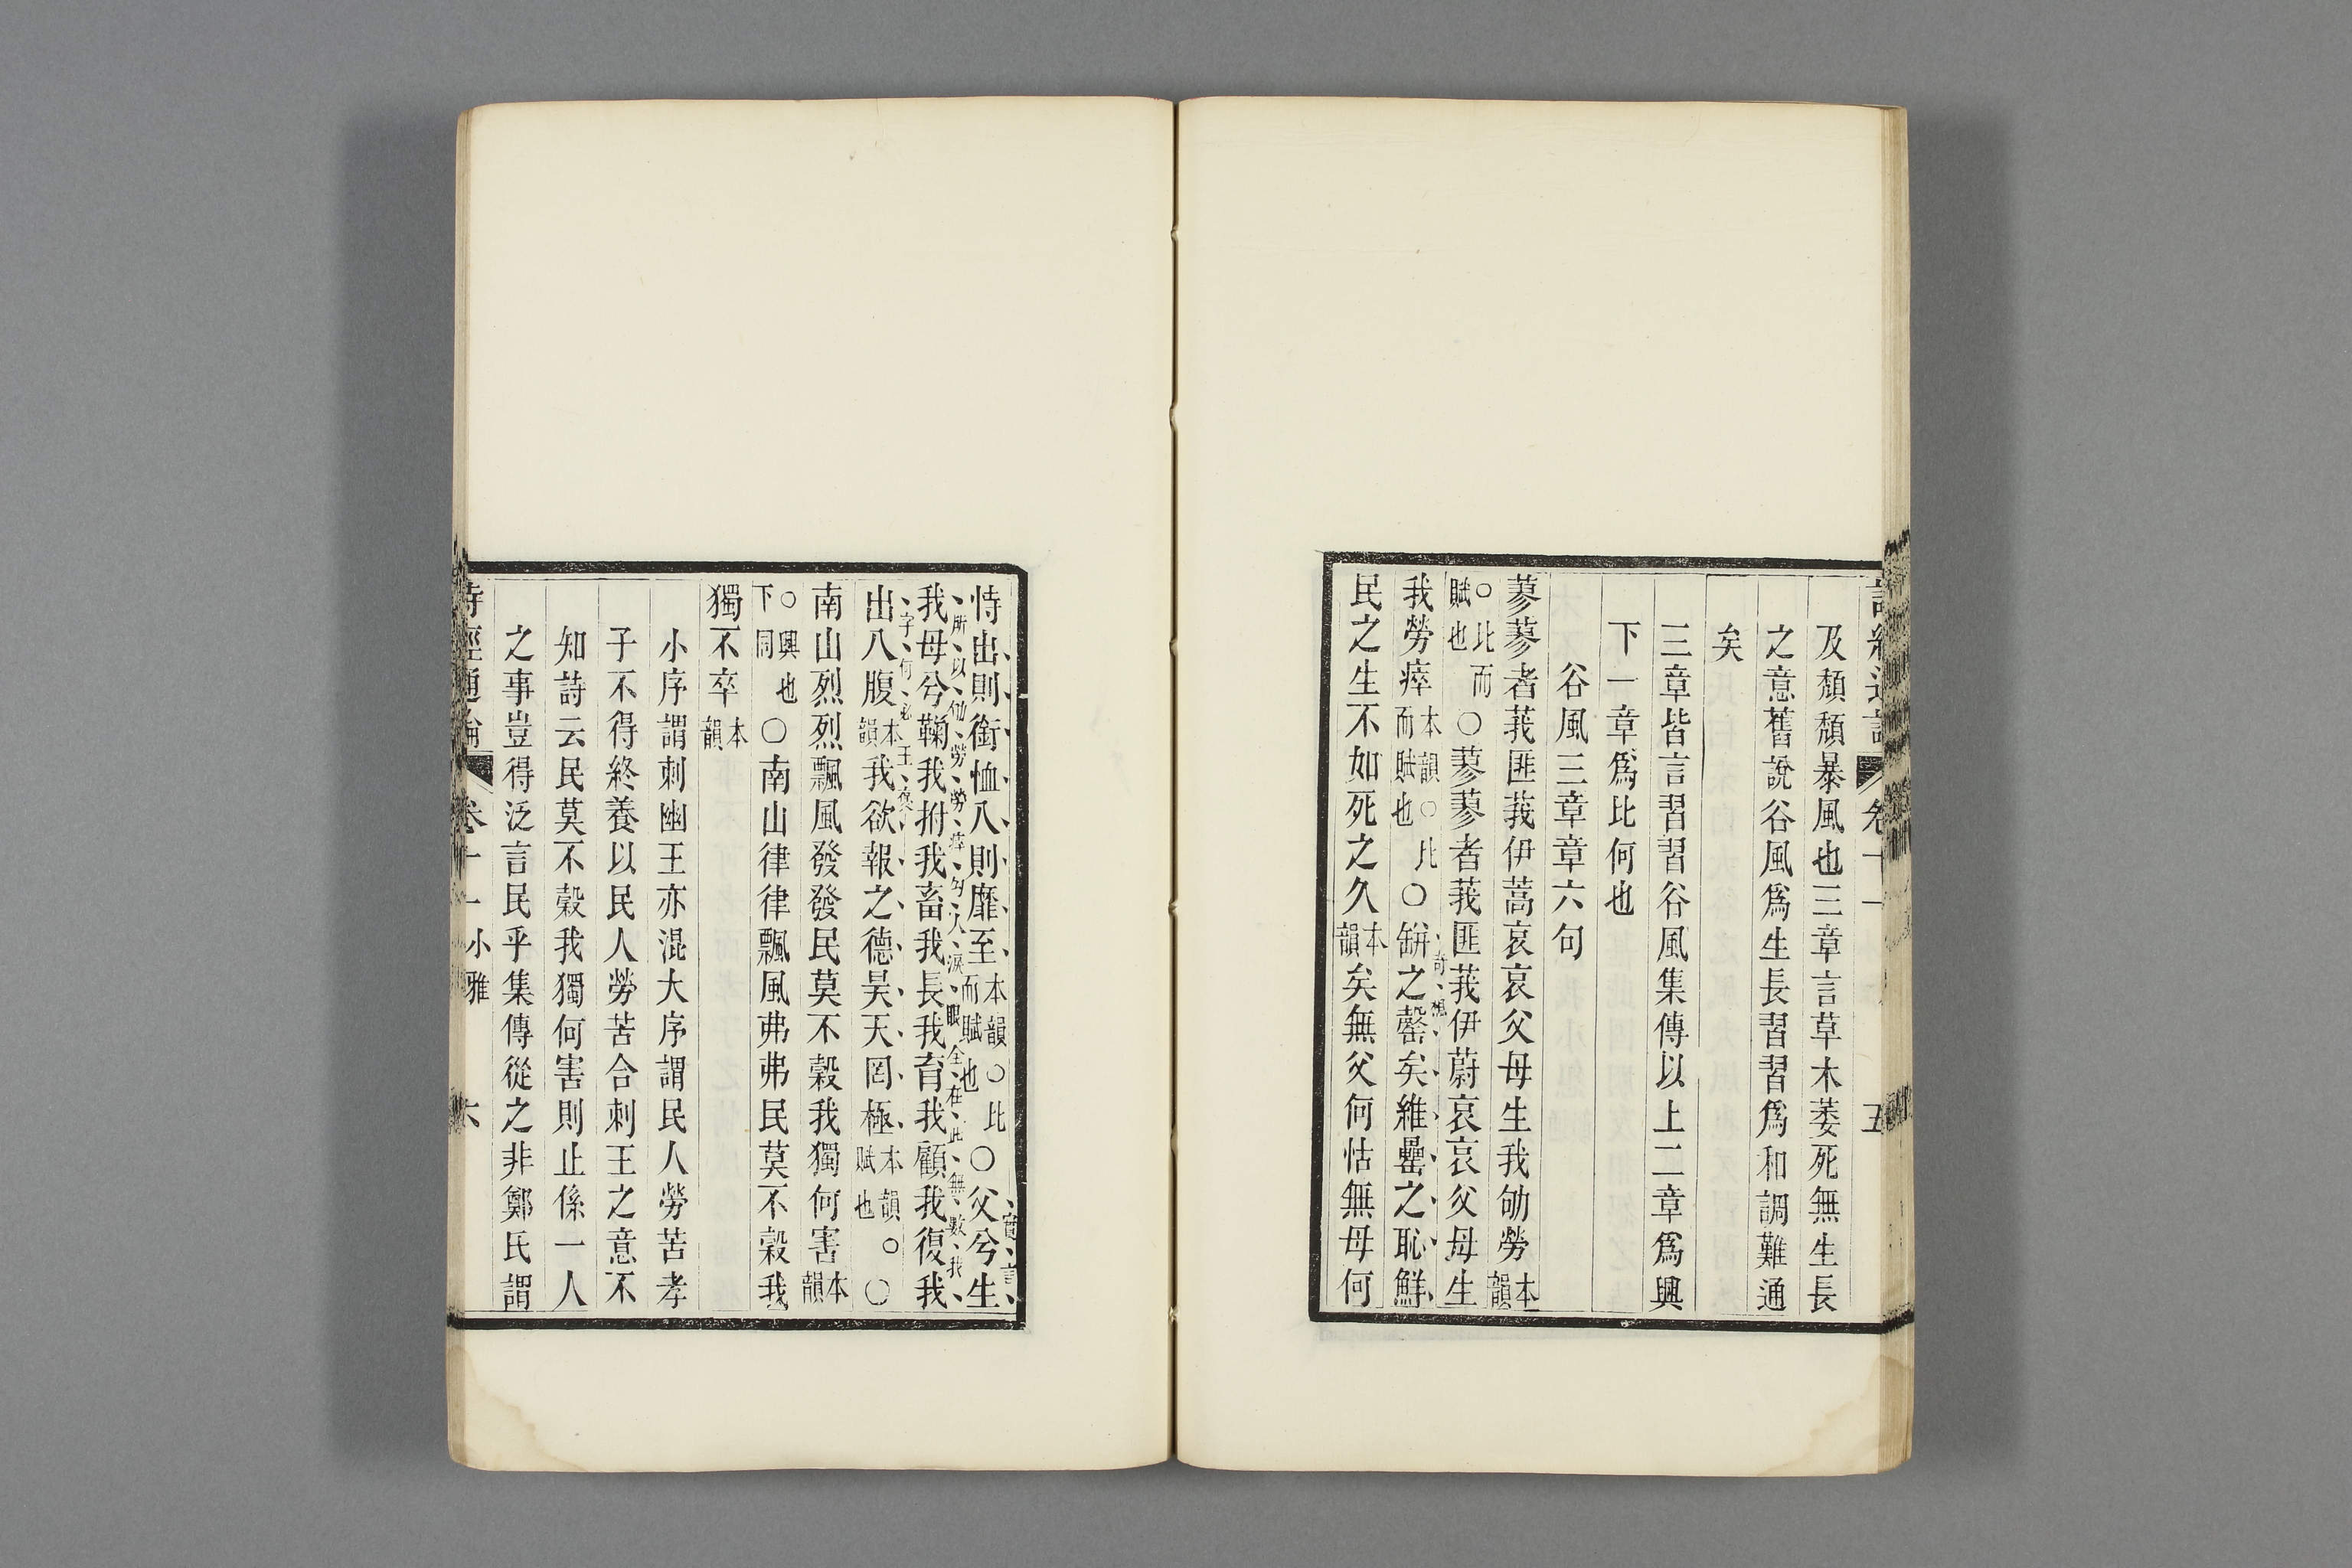 及頹頹暴風也三章言草木萎死無生長
之意舊說谷風爲生長習習爲和調難通
矣
三章皆言習習谷風集傳以上二章爲興
下一章爲比何也
谷風三章章六句
蓼蓼者莪匪莪伊蒿哀哀父母生我劬勞本韻
○比而賦也○蓼蓼者莪匪莪伊蔚哀哀父母生
我勞瘁本韻○比而賦也○缾之罄矣維罍之恥鮮
奇想
民之生不如死之久本韻矣無父何怙無母何
五
恃出則銜恤入則靡至本韻○比而賦也○父兮生
實言
所以劬勞勞瘁勾人淚眼全在此無數我
我母兮鞠我拊我畜我長我育我顧我復我
字何必王裒
出入腹本韻我欲報之德昊天罔極本韻○賦也○
南山烈烈飄風發發民莫不穀我獨何害本韻
○興也下同○南山律律飄風弗弗民莫不穀我
獨不卒本韻
小序謂刺幽王亦混大序謂民人勞苦孝
子不得終養以民人勞苦合刺王之意不
知詩云民莫不穀我獨何害則止係一人
之事豈得泛言民乎集傳從之非鄭氏謂
詩經通論 卷十一小雅 六